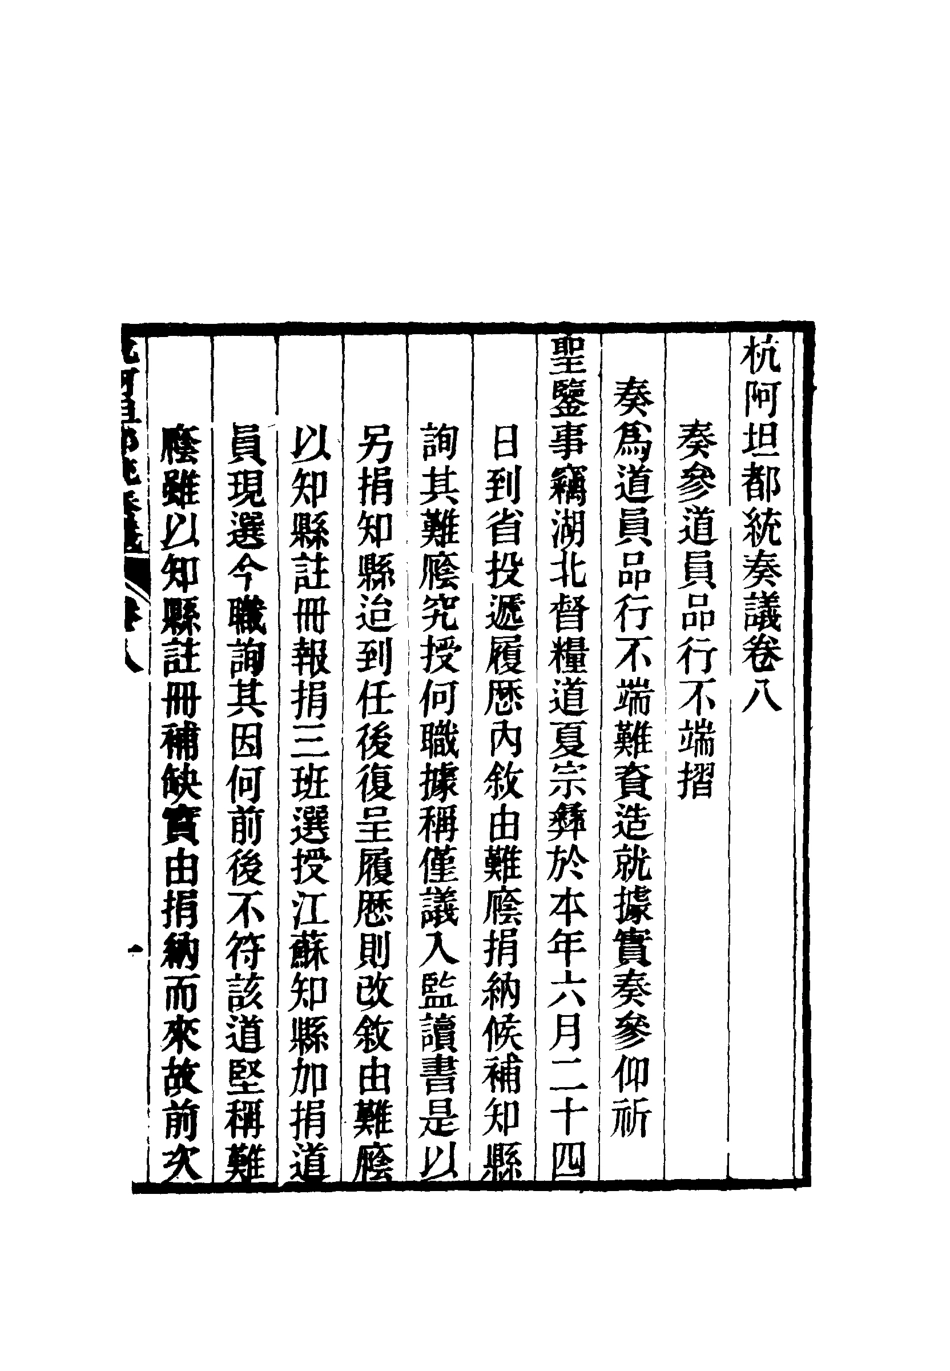 杭阿坦都統奏議卷八
奏參道員品行不端摺
奏爲道員品行不端難資造就據實奏參仰祈
聖鑒事竊湖北督糧道夏宗彝於本年六月二十四
日到省投遞履歷內敘由難廕捐納候補知縣
詢其難廕究授何職據稱僅議入監讀書是以
另捐知縣迨到任後復呈履歷則改敘由難廕
以知縣註冊報捐三班選授江蘇知縣加捐道
員現選今職詢其因何前後不符該道堅稱難
廕雖以知縣註冊補缺實由捐納而來故前次
杭阿坦都統奏議 卷八 一